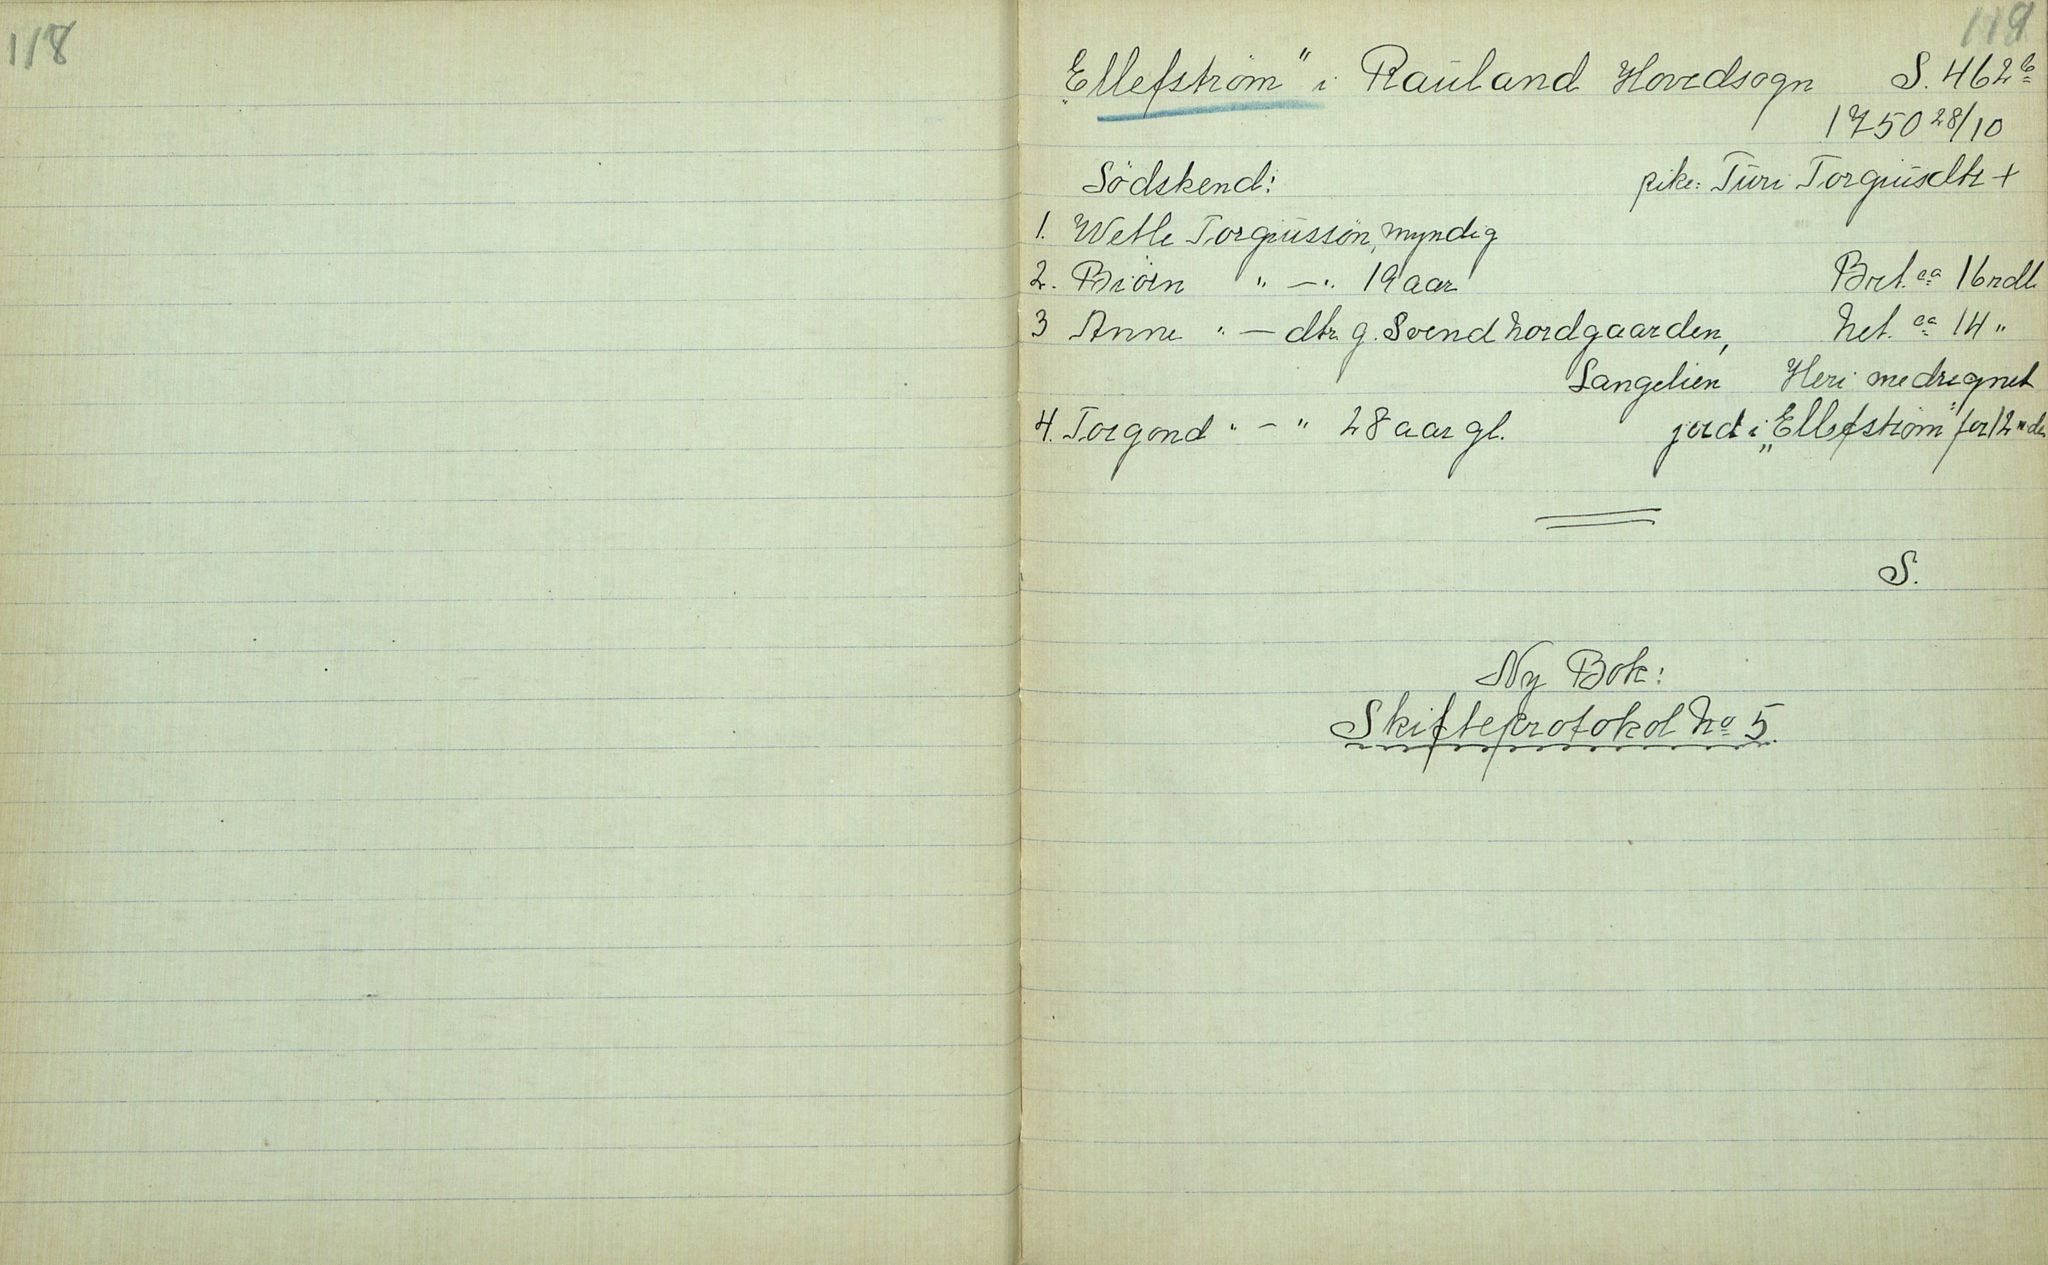 118
119
"Ellefström" i Rauland Hovedsogn S. 462b
1750 28/10
Södskend: pike: Turi Torgiusdtr +
1. Wetle Torgiussön, myndig
2. Biörn " — " 19 aar Brt. ca 16 rdl.
3 Anne " — dtr. g. Svend Nordgaarden, Net. ca 14 "
Langelien Heri medregnet
4. Torgond " - " 28 aar gl. jord i „Ellefström" for 12 rdl
S.
Ny Bok:
Skifteprotokol No 5.